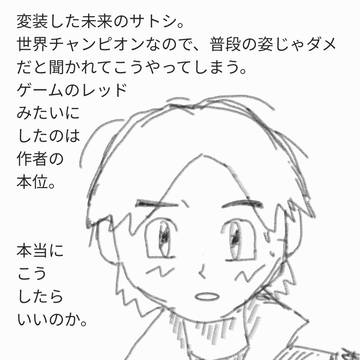 変装した未来のサトシ。
世界チャンピオンなので、普段の姿じゃダメ
だと聞かれてこうやってしまう。
ゲームのレッド
みたいに
したのは
作者の
本位。
本当に
こう
したら
いいのか。